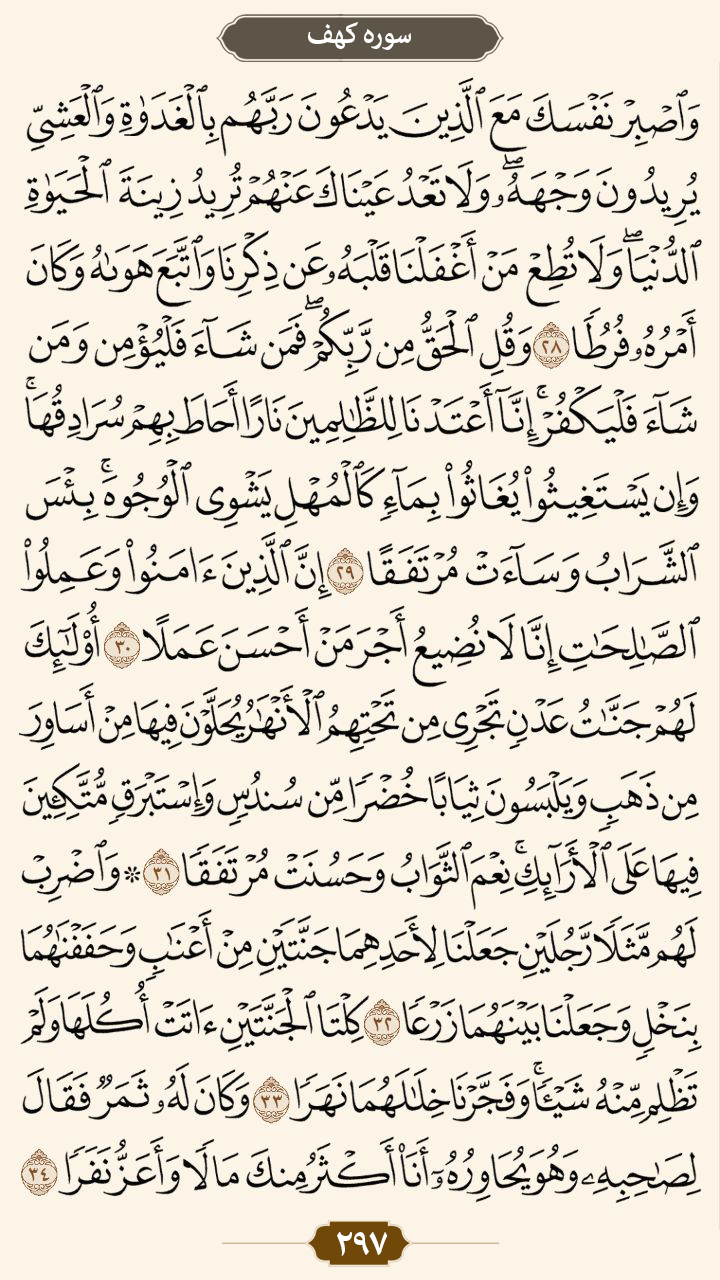 سوره کهف
وَٱصۡبِرۡ نَفۡسَكَ مَعَ ٱلَّذِينَ يَدۡعُونَ رَبَّهُم بِٱلۡغَدَوٰةِ وَٱلۡعَشِيِّ
يُرِيدُونَ وَجۡهَهُۥۖ وَلَا تَعۡدُ عَيۡنَاكَ عَنۡهُمۡ تُرِيدُ زِينَةَ ٱلۡحَيَوٰةِ
ٱلدُّنۡيَاۖ وَلَا تُطِعۡ مَنۡ أَغۡفَلۡنَا قَلۡبَهُۥ عَن ذِكۡرِنَا وَٱتَّبَعَ هَوَىٰهُ وَكَانَ
أَمۡرُهُۥ فُرُطٗا ۲۸ وَقُلِ ٱلۡحَقُّ مِن رَّبِّكُمۡۖ فَمَن شَآءَ فَلۡيُؤۡمِن وَمَن
شَآءَ فَلۡيَكۡفُرۡۚ إِنَّآ أَعۡتَدۡنَا لِلظَّٰلِمِينَ نَارًا أَحَاطَ بِهِمۡ سُرَادِقُهَاۚ
وَإِن يَسۡتَغِيثُواْ يُغَاثُواْ بِمَآءٖ كَٱلۡمُهۡلِ يَشۡوِي ٱلۡوُجُوهَۚ بِئۡسَ
ٱلشَّرَابُ وَسَآءَتۡ مُرۡتَفَقًا ۲۹ إِنَّ ٱلَّذِينَ ءَامَنُواْ وَعَمِلُواْ
ٱلصَّٰلِحَٰتِ إِنَّا لَا نُضِيعُ أَجۡرَ مَنۡ أَحۡسَنَ عَمَلًا ۳۰ أُوْلَٰٓئِكَ
لَهُمۡ جَنَّٰتُ عَدۡنٖ تَجۡرِي مِن تَحۡتِهِمُ ٱلۡأَنۡهَٰرُ يُحَلَّوۡنَ فِيهَا مِنۡ أَسَاوِرَ
مِن ذَهَبٖ وَيَلۡبَسُونَ ثِيَابًا خُضۡرٗا مِّن سُندُسٖ وَإِسۡتَبۡرَقٖ مُّتَّكِـِٔينَ
فِيهَا عَلَى ٱلۡأَرَآئِكِۚ نِعۡمَ ٱلثَّوَابُ وَحَسُنَتۡ مُرۡتَفَقٗا ۳۱ * وَٱضۡرِبۡ
لَهُم مَّثَلٗا رَّجُلَيۡنِ جَعَلۡنَا لِأَحَدِهِمَا جَنَّتَيۡنِ مِنۡ أَعۡنَٰبٖ وَحَفَفۡنَٰهُمَا
بِنَخۡلٖ وَجَعَلۡنَا بَيۡنَهُمَا زَرۡعٗا ۳۲ كِلۡتَا ٱلۡجَنَّتَيۡنِ ءَاتَتۡ أُكُلَهَا وَلَمۡ
تَظۡلِم مِّنۡهُ شَيۡـٔٗاۚ وَفَجَّرۡنَا خِلَٰلَهُمَا نَهَرٗا ۳۳ وَكَانَ لَهُۥ ثَمَرٞ فَقَالَ
لِصَٰحِبِهِۦ وَهُوَ يُحَاوِرُهُۥٓ أَنَا۠ أَكۡثَرُ مِنكَ مَالٗا وَأَعَزُّ نَفَرٗا ۳۴
۲۹۷